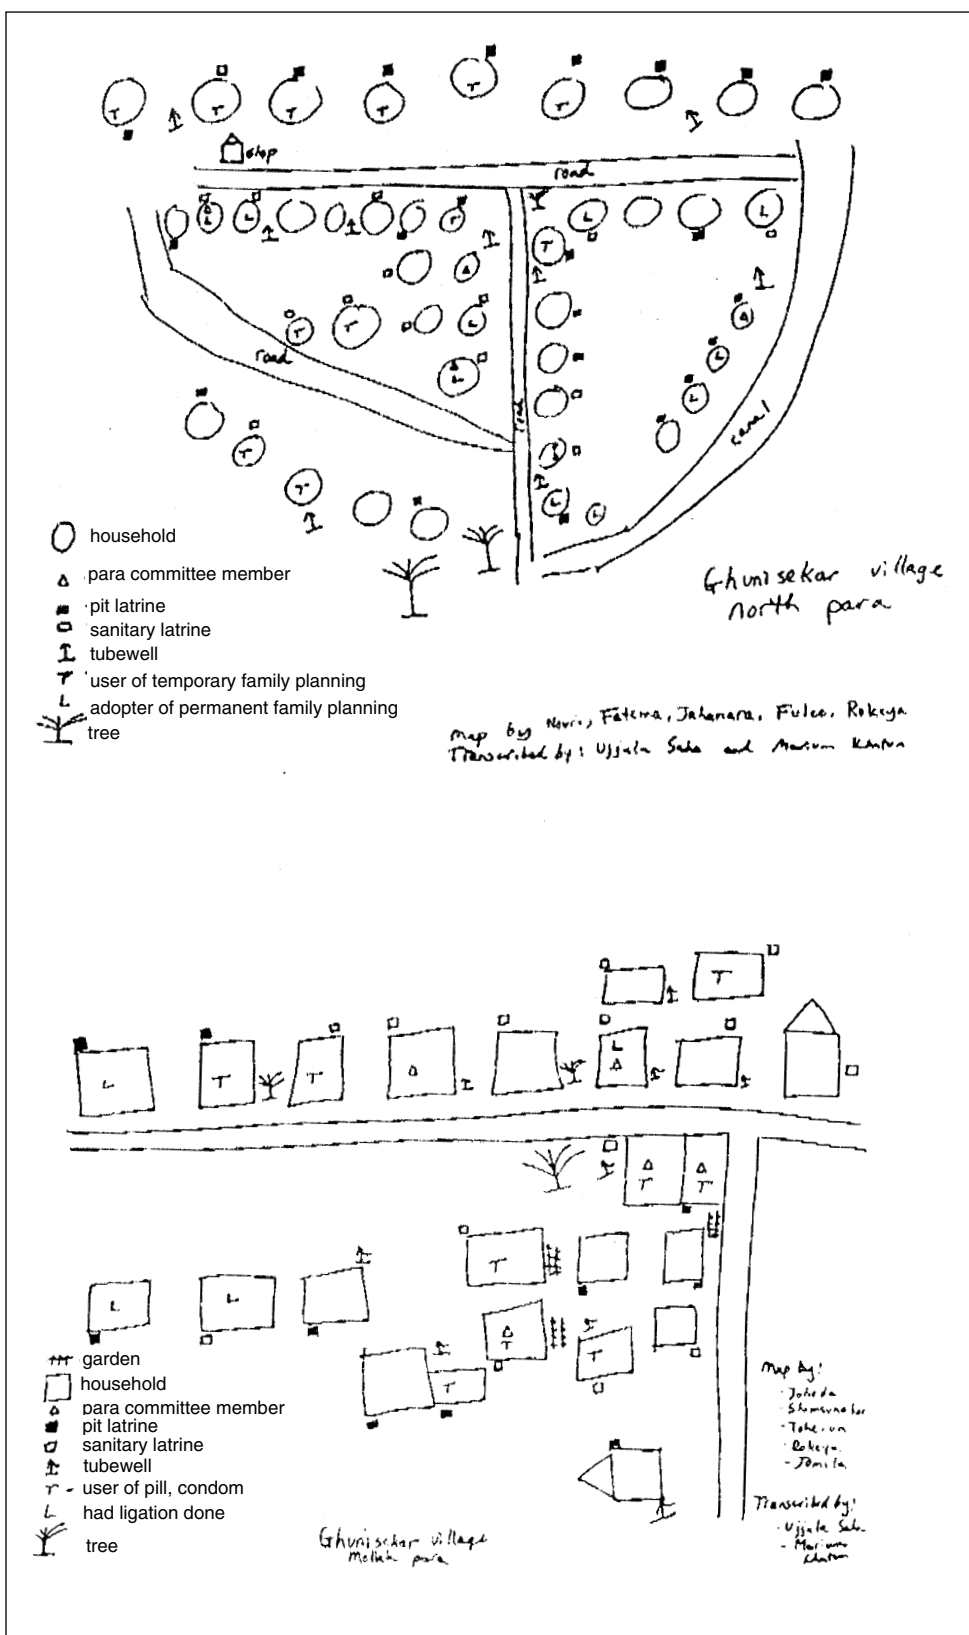 shop
road
road
road
canal
household
para committee member
pit latrine
sanitary latrine
tubewell
user of temporary family planning
adopter of permanent family planning
tree
Ghunisekar village
north para
map by Nouri, Fatema, Jahanara, Fulee, Rokeya
Transcribed by: Ujjala Saha and Marium Khatun
garden
household
para committee member
pit latrine
sanitary latrine
tubewell
user of pill, condom
had ligation done
tree
Ghunisekar village
Mollah para
Map by:
- Joheda
- Shamsunahar
- Rokeya
- Jomila
Transcribed by:
- Ujjala Saha
- Marium
Khatun